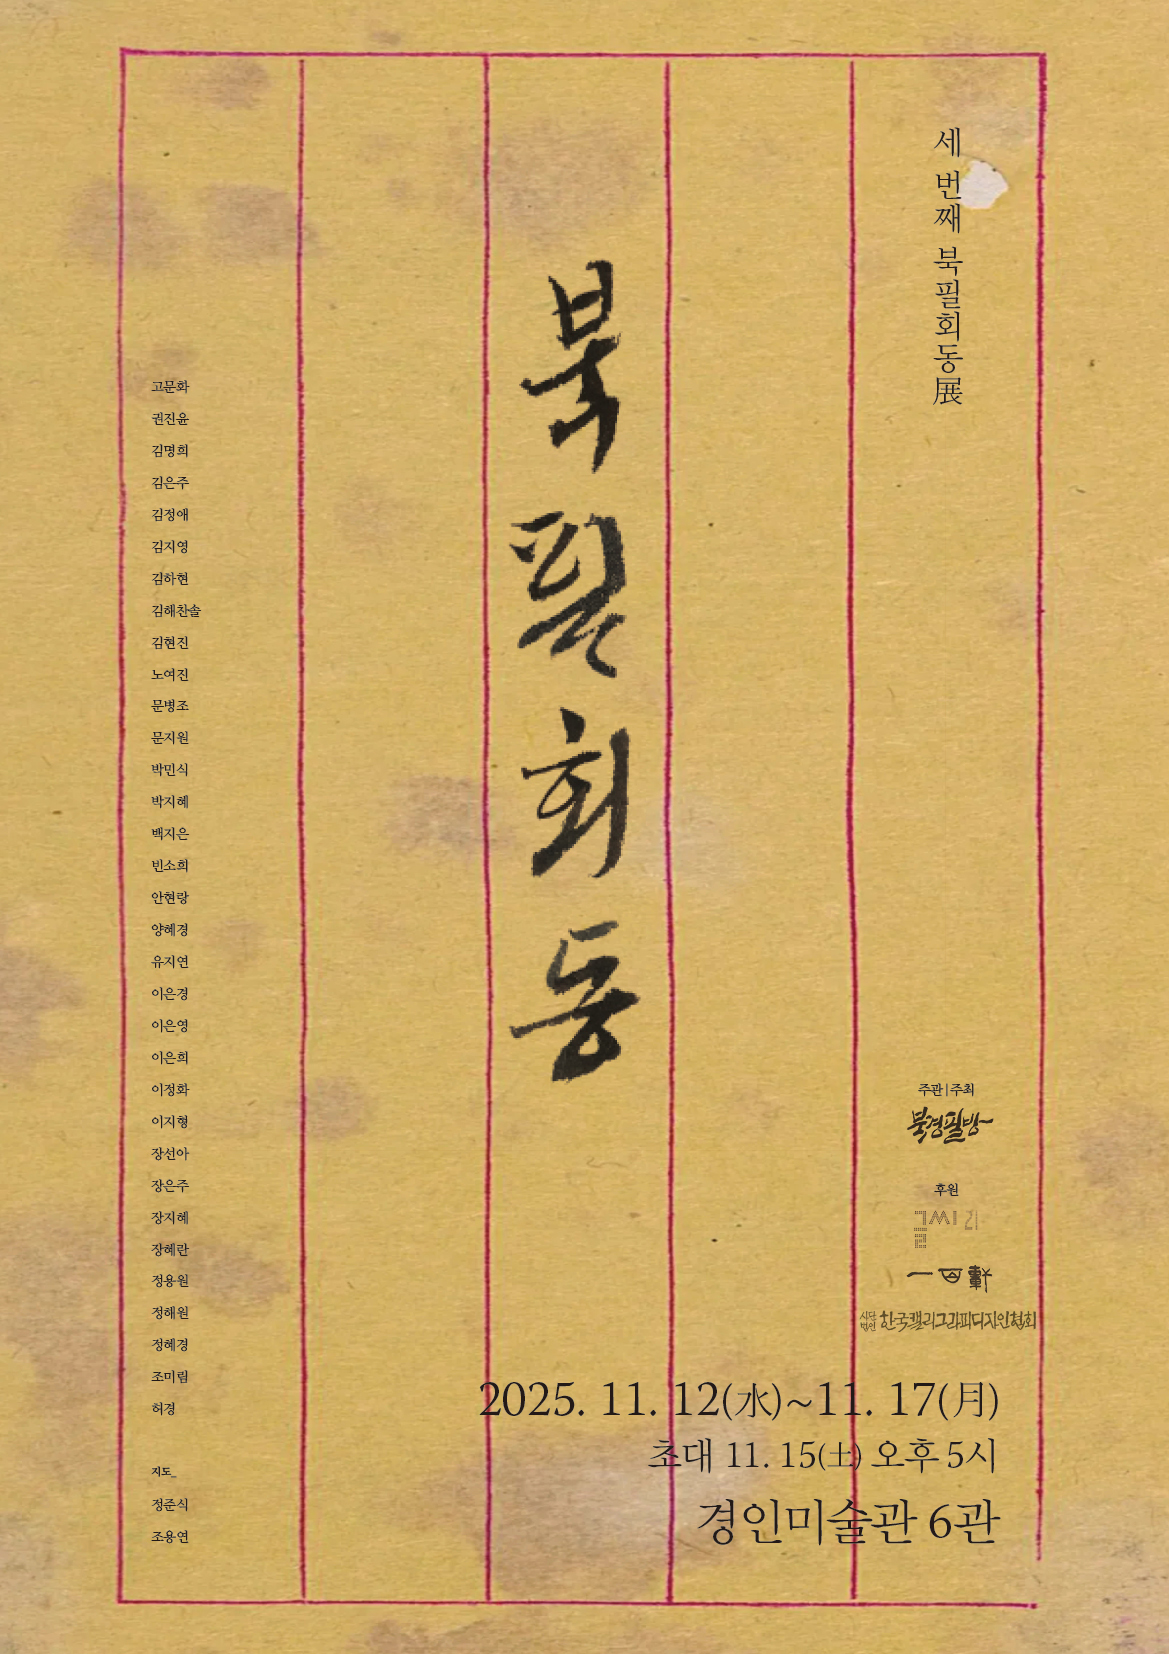 세 번째 북필회동展
북필회동
고문화
권진윤
김명희
김은주
김정애
김지영
김하현
김해찬솔
김현진
노여진
문병조
문지원
박민식
박지혜
백지은
빈소희
안현랑
양혜경
유지연
이은경
이은영
이은희
이정화
이지형
장선아
장은주
장지혜
장혜란
정용원
정해원
정혜경
조미림
허경
지도_
정준식
조용연
주관|주최
북경필방
후원
글씨21
사단법인 한국캘리그라피디자인협회
2025. 11. 12(水)~11. 17(月)
초대 11. 15(土) 오후 5시
경인미술관 6관